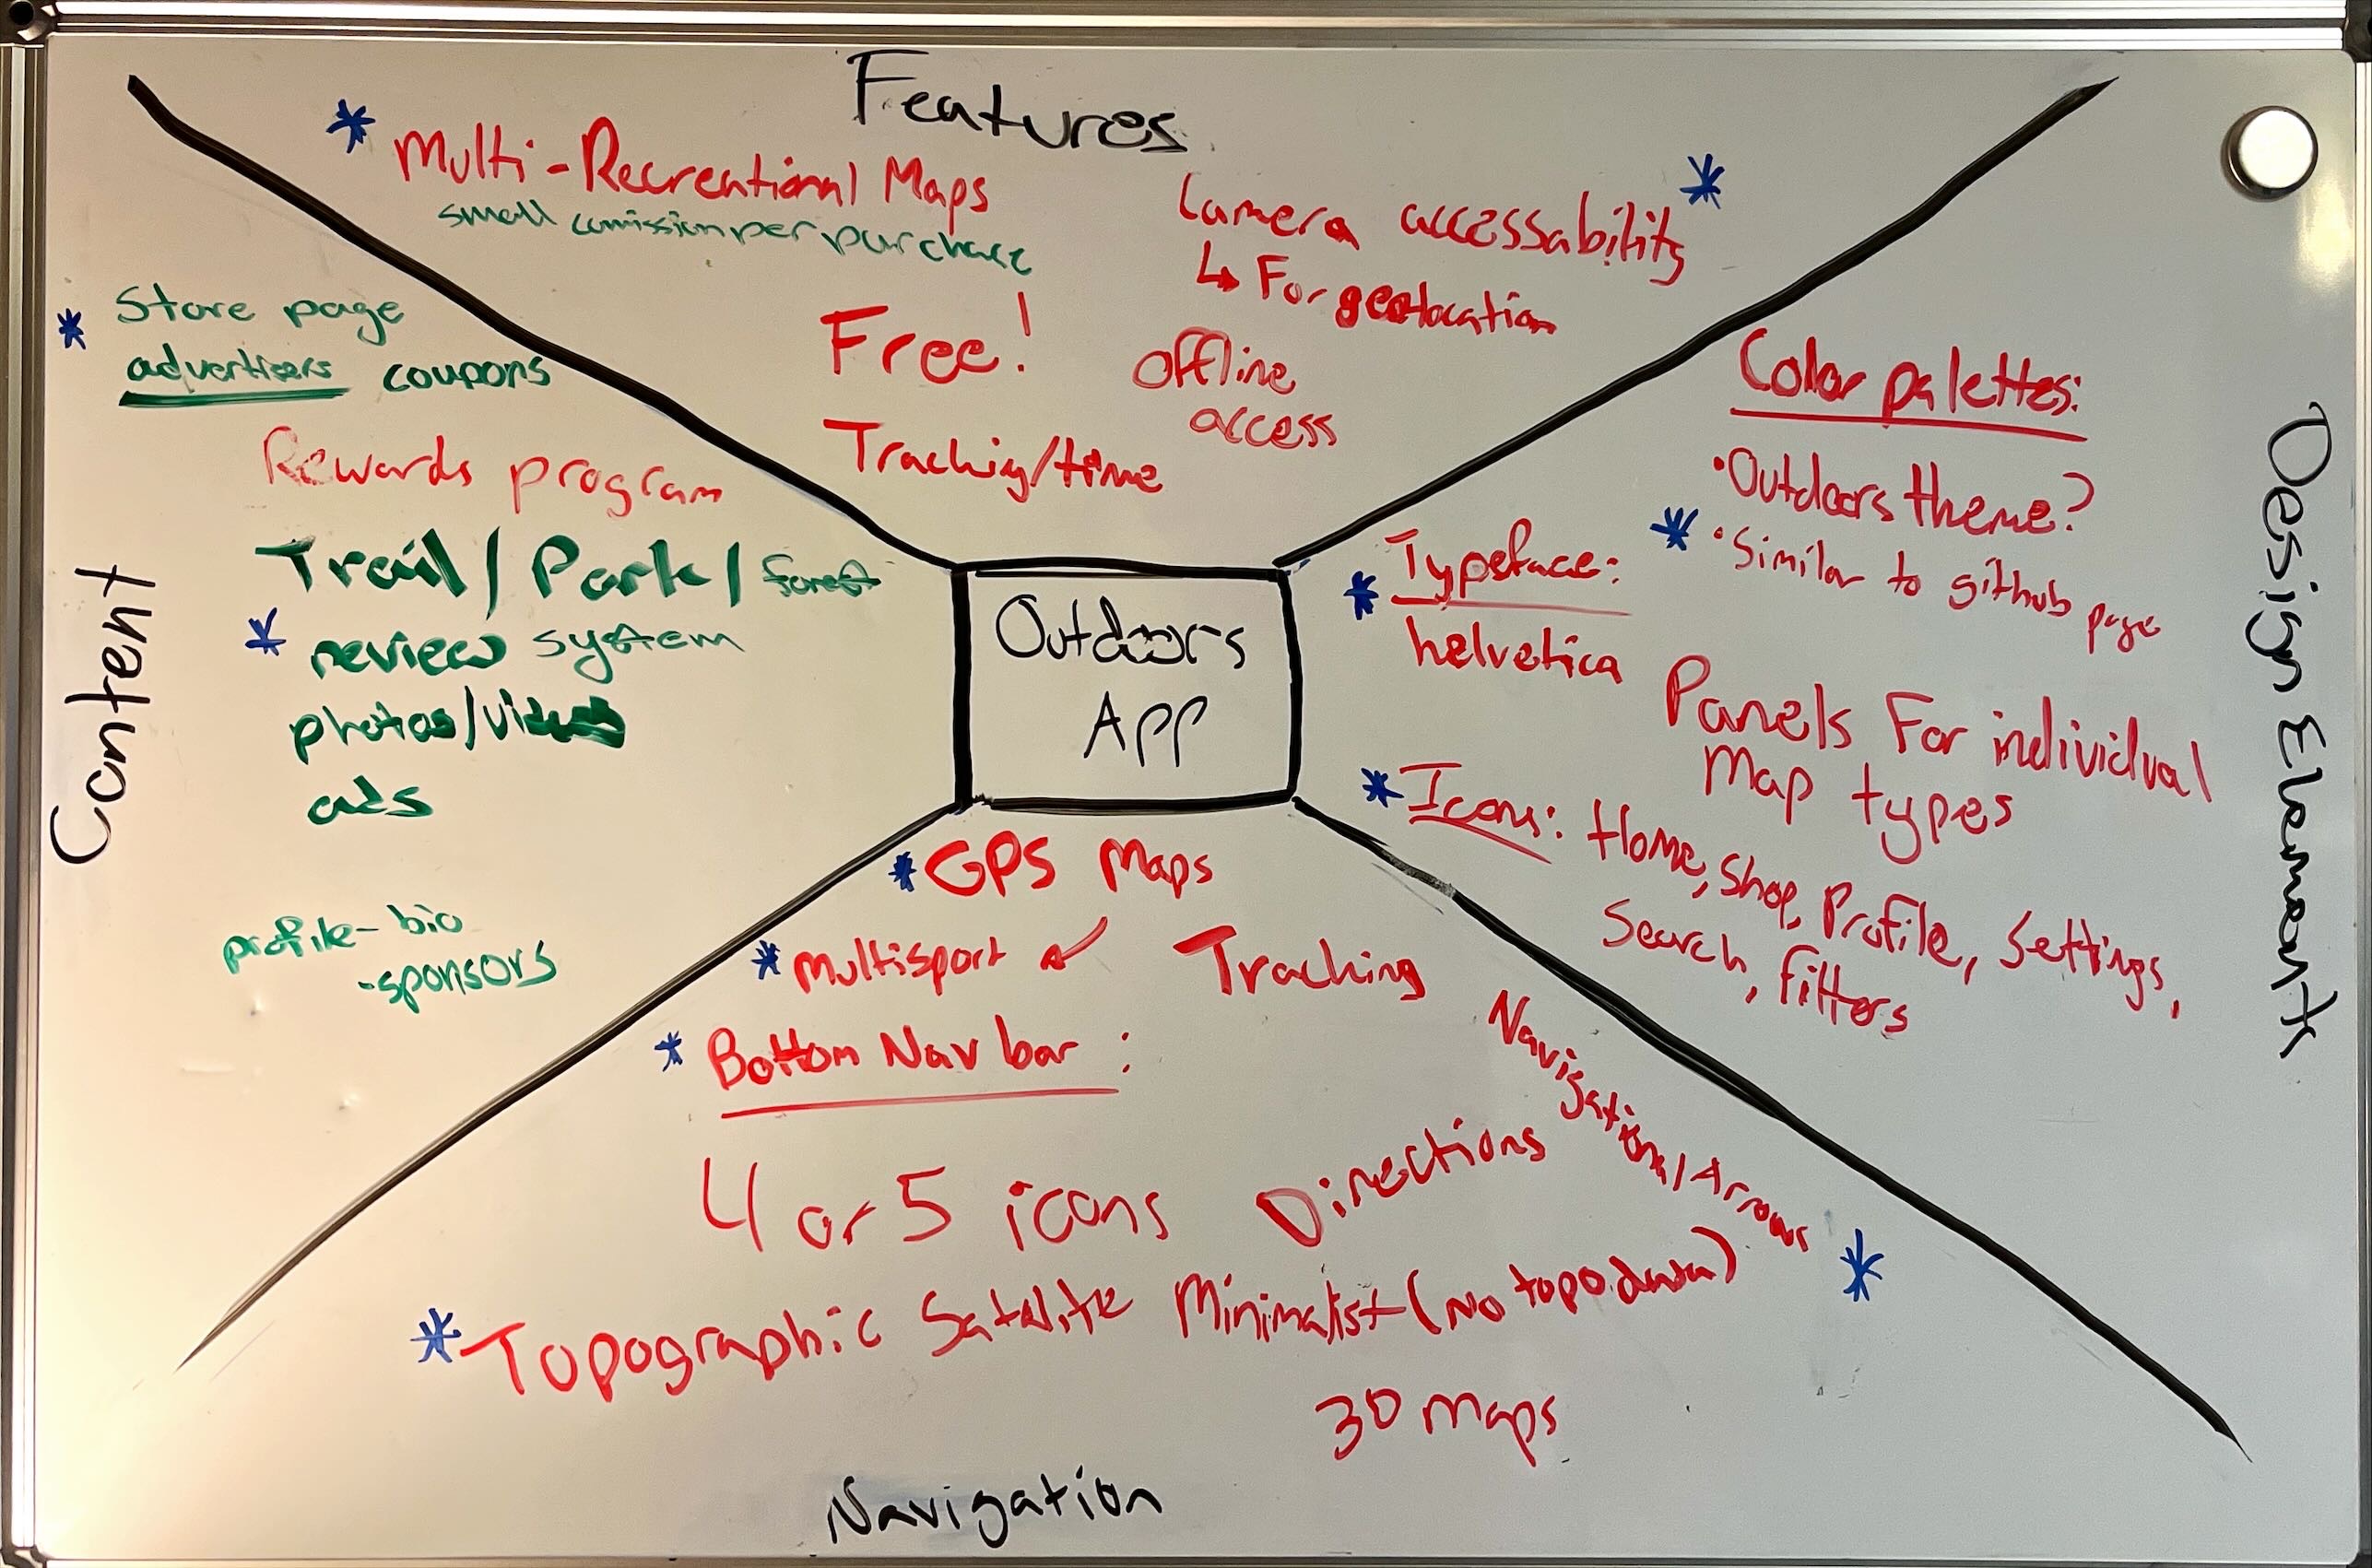 Features
* Multi-Recreational Maps
small comission per purchase
Camera accessability *
↳ For geolocation
Free!
Offline
access
Tracking/time
* Store page
advertisers coupons
Rewards program
Trail / Park / forest
* review system
photos/videos
ads
profile - bio
- sponsors
Content
Outdoors
App
Color palettes:
• Outdoors theme?
* • Similar to github page
* Typeface:
helvetica
Panels For individual
Map types
* Icons: Home, Shop, Profile, Settings,
Search, filters
Design Elements
* GPS Maps
* Multisport ↙
Tracking
* Bottom Nav bar:
4 or 5 icons
Directions
Navigation/Arrows *
* Topographic Satelite Minimalist (No topo. data)
3D maps
Navigation